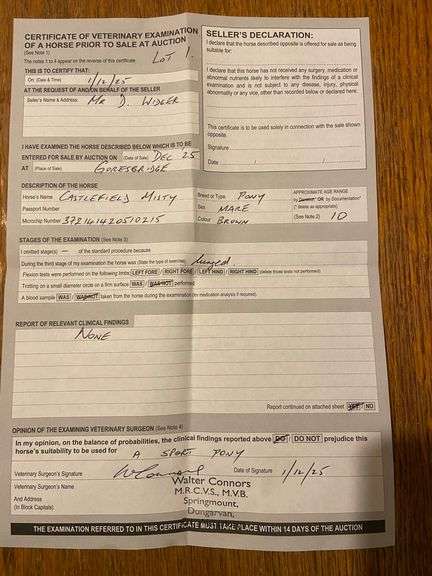 CERTIFICATE OF VETERINARY EXAMINATION
OF A HORSE PRIOR TO SALE AT AUCTION
(See Note 1)
The notes 1 to 4 appear on the reverse of this certificate
LOT 1.
THIS IS TO CERTIFY THAT:
On: (Date & Time) 1/12/25
AT THE REQUEST OF AND/ON BEHALF OF THE SELLER
Seller's Name & Address: MR D. WIDGER
I HAVE EXAMINED THE HORSE DESCRIBED BELOW WHICH IS TO BE
ENTERED FOR SALE BY AUCTION ON (Date of Sale) DEC 25
AT (Place of Sale) GORESBRIDGE
SELLER'S DECLARATION:
I declare that the horse described opposite is offered for sale as being
suitable for:
I declare that this horse has not received any surgery, medication or
abnormal nutrients likely to interfere with the findings of a clinical
examination and is not subject to any disease, injury, physical
abnormality or any vice, other than recorded below or declared here.
This certificate is to be used solely in connection with the sale shown
opposite.
Signature
Date / /
DESCRIPTION OF THE HORSE
Horse's Name CASTLEFIELD MISTY
Passport Number
Microchip Number 372141420510215
Breed or Type PONY
Sex MARE
Colour BROWN
APPROXIMATE AGE RANGE
by Dentition* OR by Documentation*
(* delete as appropriate)
(See Note 2) 10
STAGES OF THE EXAMINATION (See Note 3)
I omitted stage(s) — of the standard procedure because
During the third stage of my examination the horse was (State the type of exercise) lunged.
Flexion tests were performed on the following limbs LEFT FORE / RIGHT FORE / LEFT HIND / RIGHT HIND (delete those tests not performed)
Trotting on a small diameter circle on a firm surface WAS / WAS NOT performed
A blood sample WAS / WAS NOT taken from the horse during the examination (for medication analysis if required).
REPORT OF RELEVANT CLINICAL FINDINGS
NONE
Report continued on attached sheet YES / NO
OPINION OF THE EXAMINING VETERINARY SURGEON (See Note 4)
In my opinion, on the balance of probabilities, the clinical findings reported above DO / DO NOT prejudice this
horse's suitability to be used for A SPORT PONY
Veterinary Surgeon's Signature WConnors Date of Signature 1/12/25
Veterinary Surgeon's Name
And Address
(In Block Capitals)
Walter Connors
M.R.C.V.S., M.V.B.
Springmount,
Dungarvan,
THE EXAMINATION REFERRED TO IN THIS CERTIFICATE MUST TAKE PLACE WITHIN 14 DAYS OF THE AUCTION